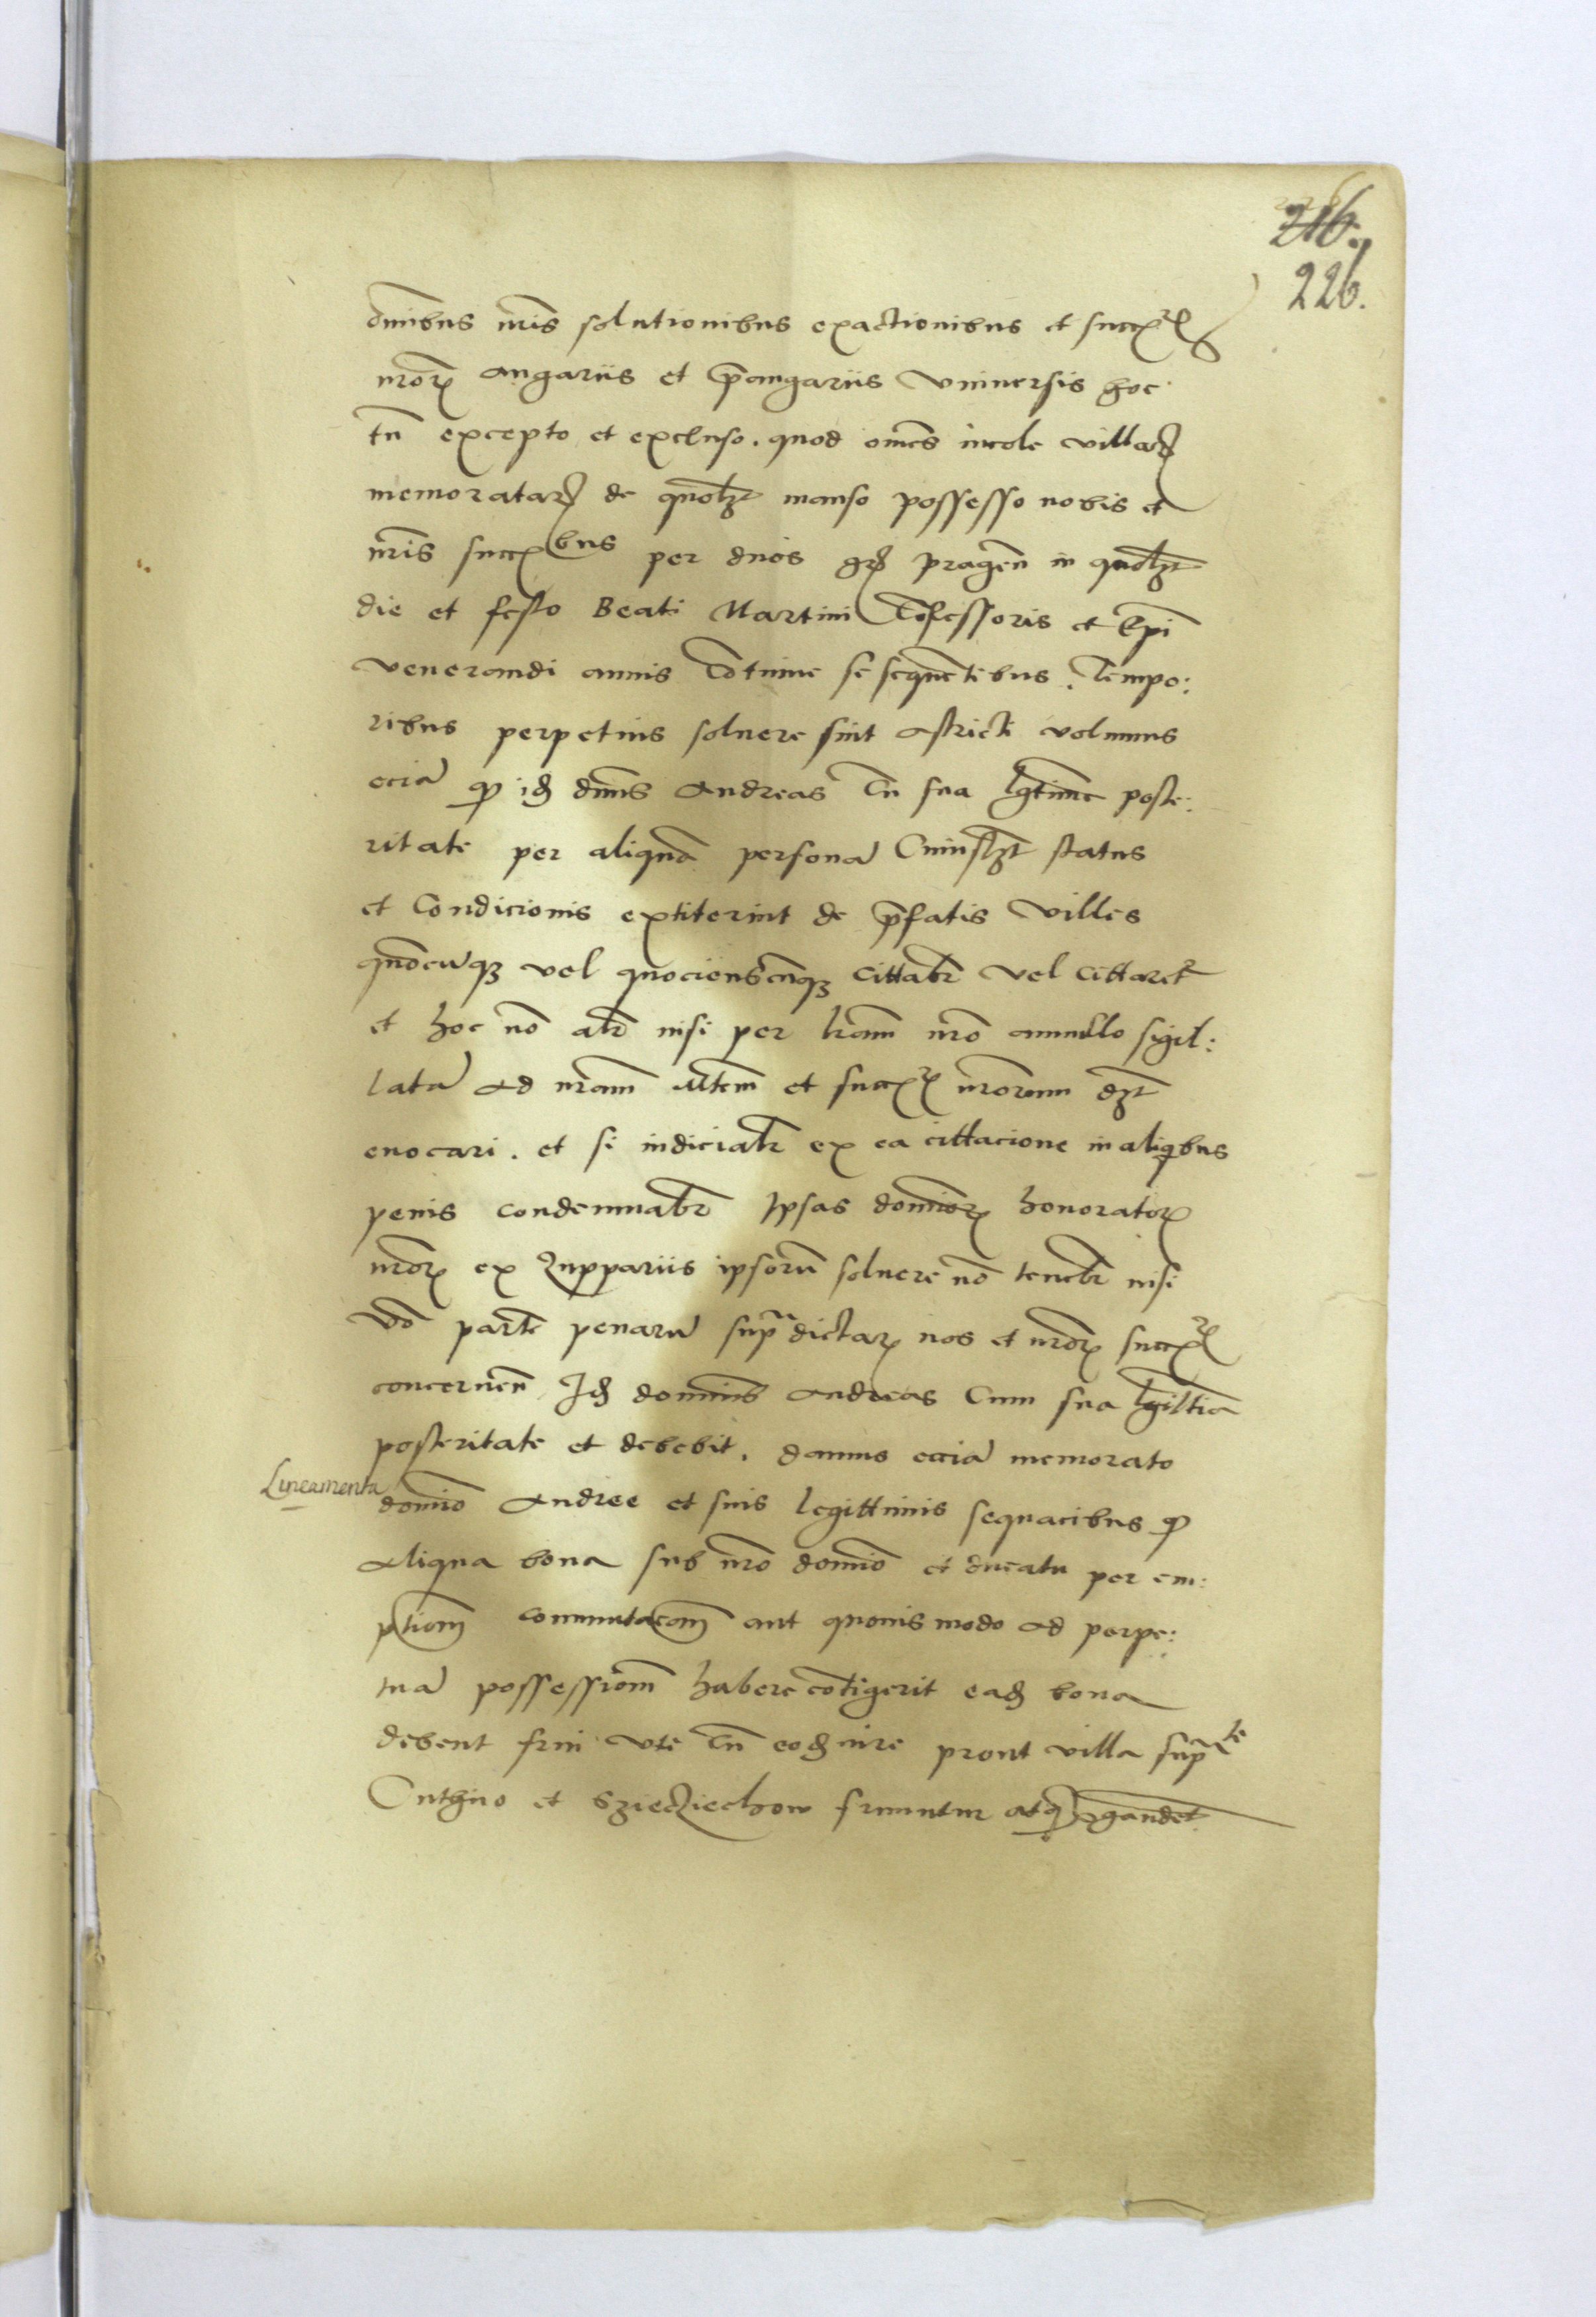 216.
226.
om̅ibus nr̅is solutionibus exactionibus et succꝝ
nr̅oꝝ angariis et p̅angariis vniuersis hoc
tn̅ excepto et excluso. quod om̅es incole villaꝝ
memorataꝝ de quolꝫt manso possesso nobis et
nr̅is succ̅bus per duos gr̅ pragen̅ in quolꝫt
die et festo Beati Martini Co̅fessoris et Ep̅i
venerandi annis co̅tinue se seque̅tibus. tempo:
ribus perpetuis soluere sint astricti volumus
ecia̅ ꝙ id̅ dn̅us Andreas cu̅ sua l̅gtime poste:
ritate per aliqua̅ persona̅ Cuiuslꝫt status
et Condicionis extiterint de p̅fatis Villis
quo̅cu̅qꝫ vel quocienscu̅qꝫ Cittabr̅ vel Cittaret̅
et hoc no̅ alr̅ nisi per lr̅am nr̅o annullo sigil:
lata̅ ad nr̅am p̅ntem et succꝝ nr̅orum dꝫt
euocari. et si iudiciabr̅ ex ea cittacione in aliq̅bus
penis condemnabr̅ Ipsas domi̅oꝝ honoratoꝝ
nr̅oꝝ ex Zuppariis ipsoru̅ soluere no̅ tenebr̅ nisi
vo̅ parte̅ penaru̅ supradictaꝝ nos et nr̅oꝝ succꝝ
concernen̅ Id̅ dominus Andreas Cum sua l̅gittia̅
posteritate et debebit. damus eccia̅ memorato
Lineamenta
domi̅o Andree et suis legittimis sequacibus ꝙ
aliqua bona sub nr̅o domi̅o et ducatu per em:
ptiom̅ commutac̅om̅ aut quouis modo ad perpe:
tua̅ possessiom̅ habere co̅tigerit ead̅ bona
debent frui vti cu̅ eod̅ iure prout villa supᵃte
Cuthno et Sziedziechow fruuntur atqꝫ gaude̅t